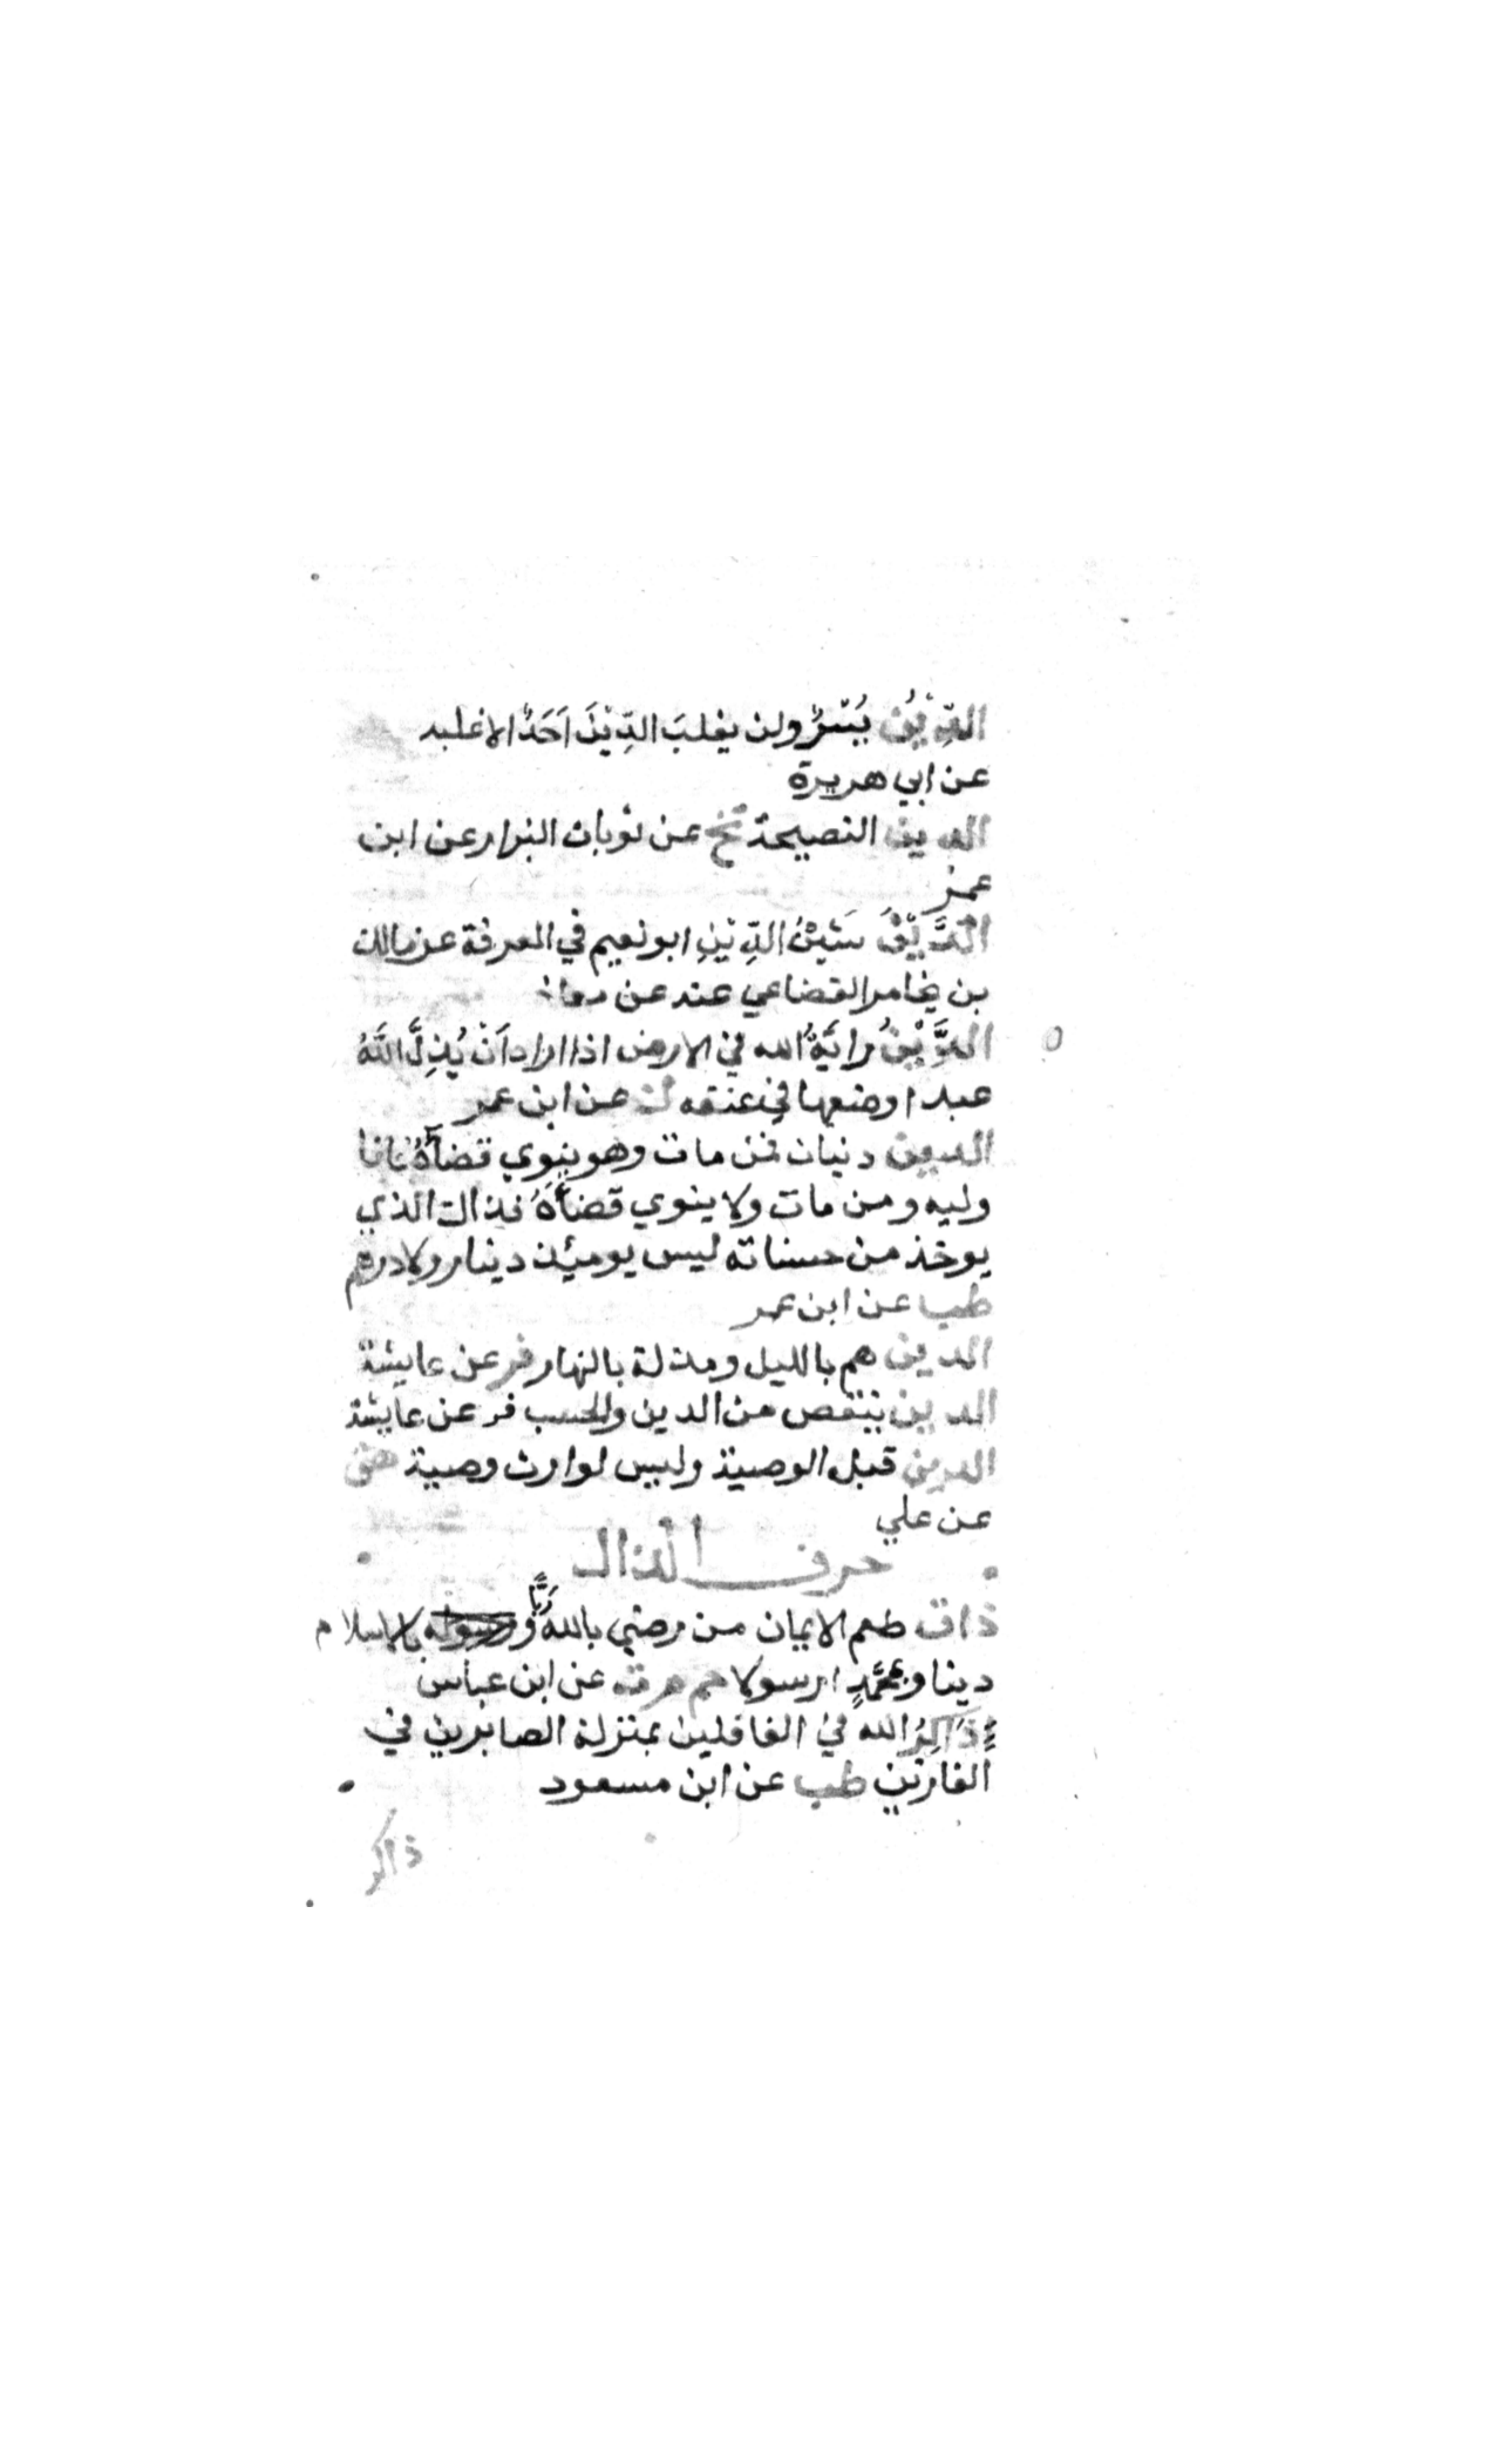 الدِّيْنُ يُسْرٌ ولن يغلبَ الدِّيْنَ اَحَدٌ الا غلبه
عن ابي هريرة
الدين النصيحة تخ عن ثوبان البزار عن ابن
عمر
الدَّيْنُ شَيْنُ الدِّيْنِ ابو نعيم في المعرفة عن مالك
بن يخامر القضاعي عنه عن معاذ
الدَّيْنُ رايَةُ الله في الارض اذا اراد اَنْ يُذِلَّ اللهُ
عبدا وضعها في عنقه ك عن ابن عمر
الدين دنيان فمن مات وهو ينوي قضاَهُ فانا
وليه ومن مات ولا ينوي قضاَهُ فذاك الذي
يوخذ من حسناته ليس يومئذ دينار ولا درهم
طب عن ابن عمر
الدين هم بالليل ومذلة بالنهار فر عن عايشة
الدين ينقص من الدين والحسب فر عن عايشة
الدين قبل الوصية وليس لوارث وصية هق
عن علي
حرف الذال
ذاق طعم الايمان من رضي بالله رَبًّا و بالاسلام
دينا وبمحَمَّدٍ رسولا حم م ت عن ابن عباس
ذَاكِرُ الله في الغافلين بمنزلة الصابرين في
الفارين طب عن ابن مسعود
ذاكر